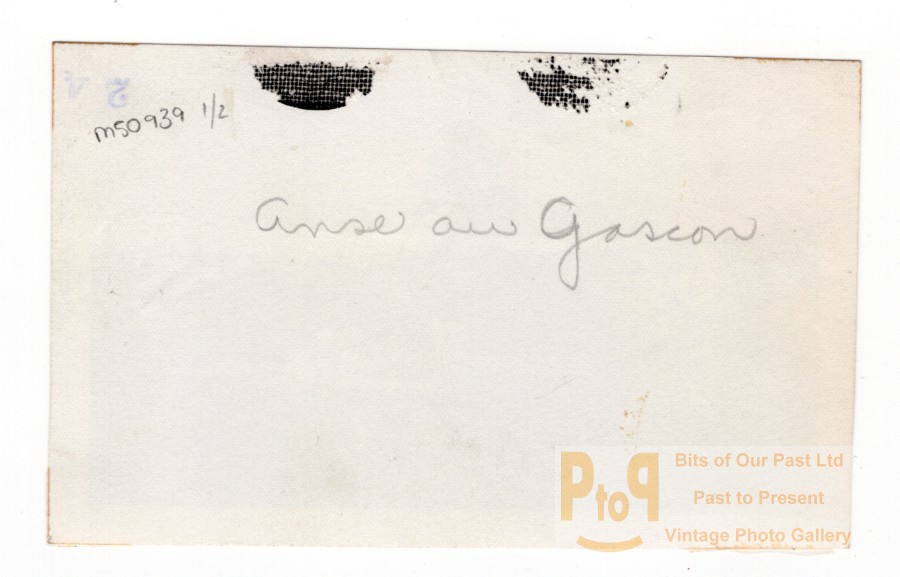 24
m50939 1/2
Anse au Gascon
PtoP
Bits of Our Past Ltd
Past to Present
Vintage Photo Gallery